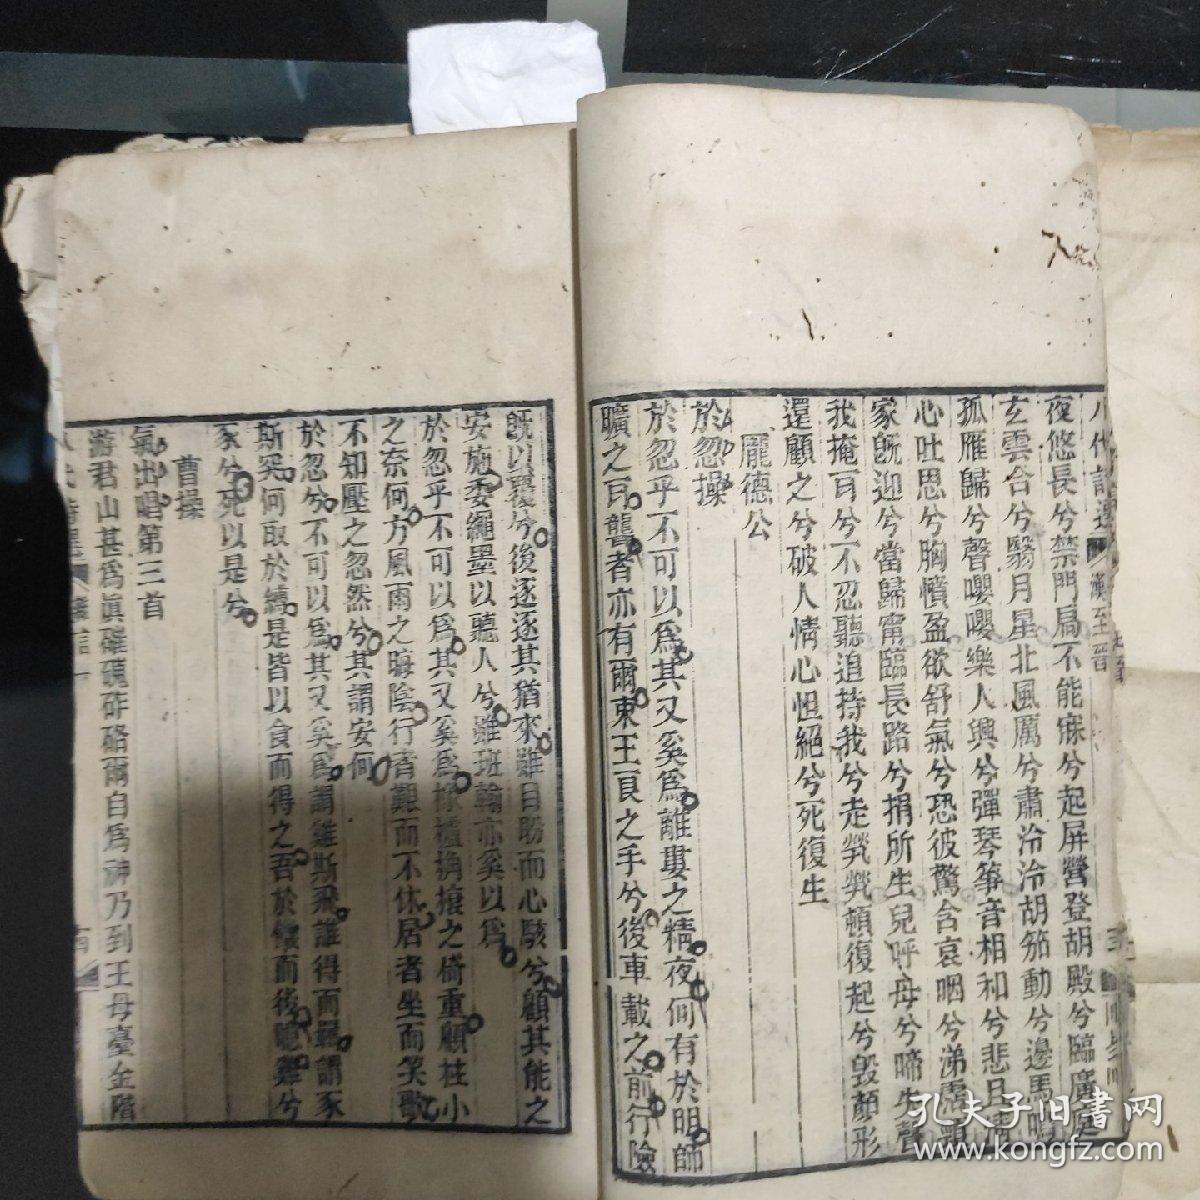 八代詩選 漢至晉
夜悠長兮禁門扃不能寐兮起屏營登胡殿兮臨廣庭
玄雲合兮翳月星北風厲兮肅泠泠胡笳動兮邊馬鳴
孤雁歸兮聲嚶嚶樂人興兮彈琴箏音相和兮悲且清
心吐思兮胸憤盈欲舒氣兮恐彼驚含哀咽兮涕霑頸
家既迎兮當歸甯臨長路兮捐所生兒呼母兮啼失聲
我掩耳兮不忍聽追持我兮走煢煢頓復起兮毀顏形
還顧之兮破人情心怛絕兮死復生
龐德公
於忽操
於忽乎不可以爲其又奚爲離婁之精夜何有於明師
曠之耳聾者亦有爾東王良之手兮後車載之前行險
既以覆兮後逐逐其猶來雖目盼而心駭兮顧其能之
安施委繩墨以聽人兮雖班輸亦奚以爲
於忽乎不可以爲其又奚爲椽櫨桷榱之倚重顧柱小
之奈何方風雨之晦陰行者艱而不休居者坐而笑歌
不知壓之忽然兮其謂安何
於忽兮不可以爲其又奚爲謂雞斯飛誰得而羈謂豕
斯突何取於縛是皆以食而得之吾於饑而後噫雞兮
豕兮死以是兮
曹操
氣出唱第三首
游君山甚爲真磪磈砟硌爾自爲神乃到王母臺金階
孔夫子旧書网
www.kongfz.com